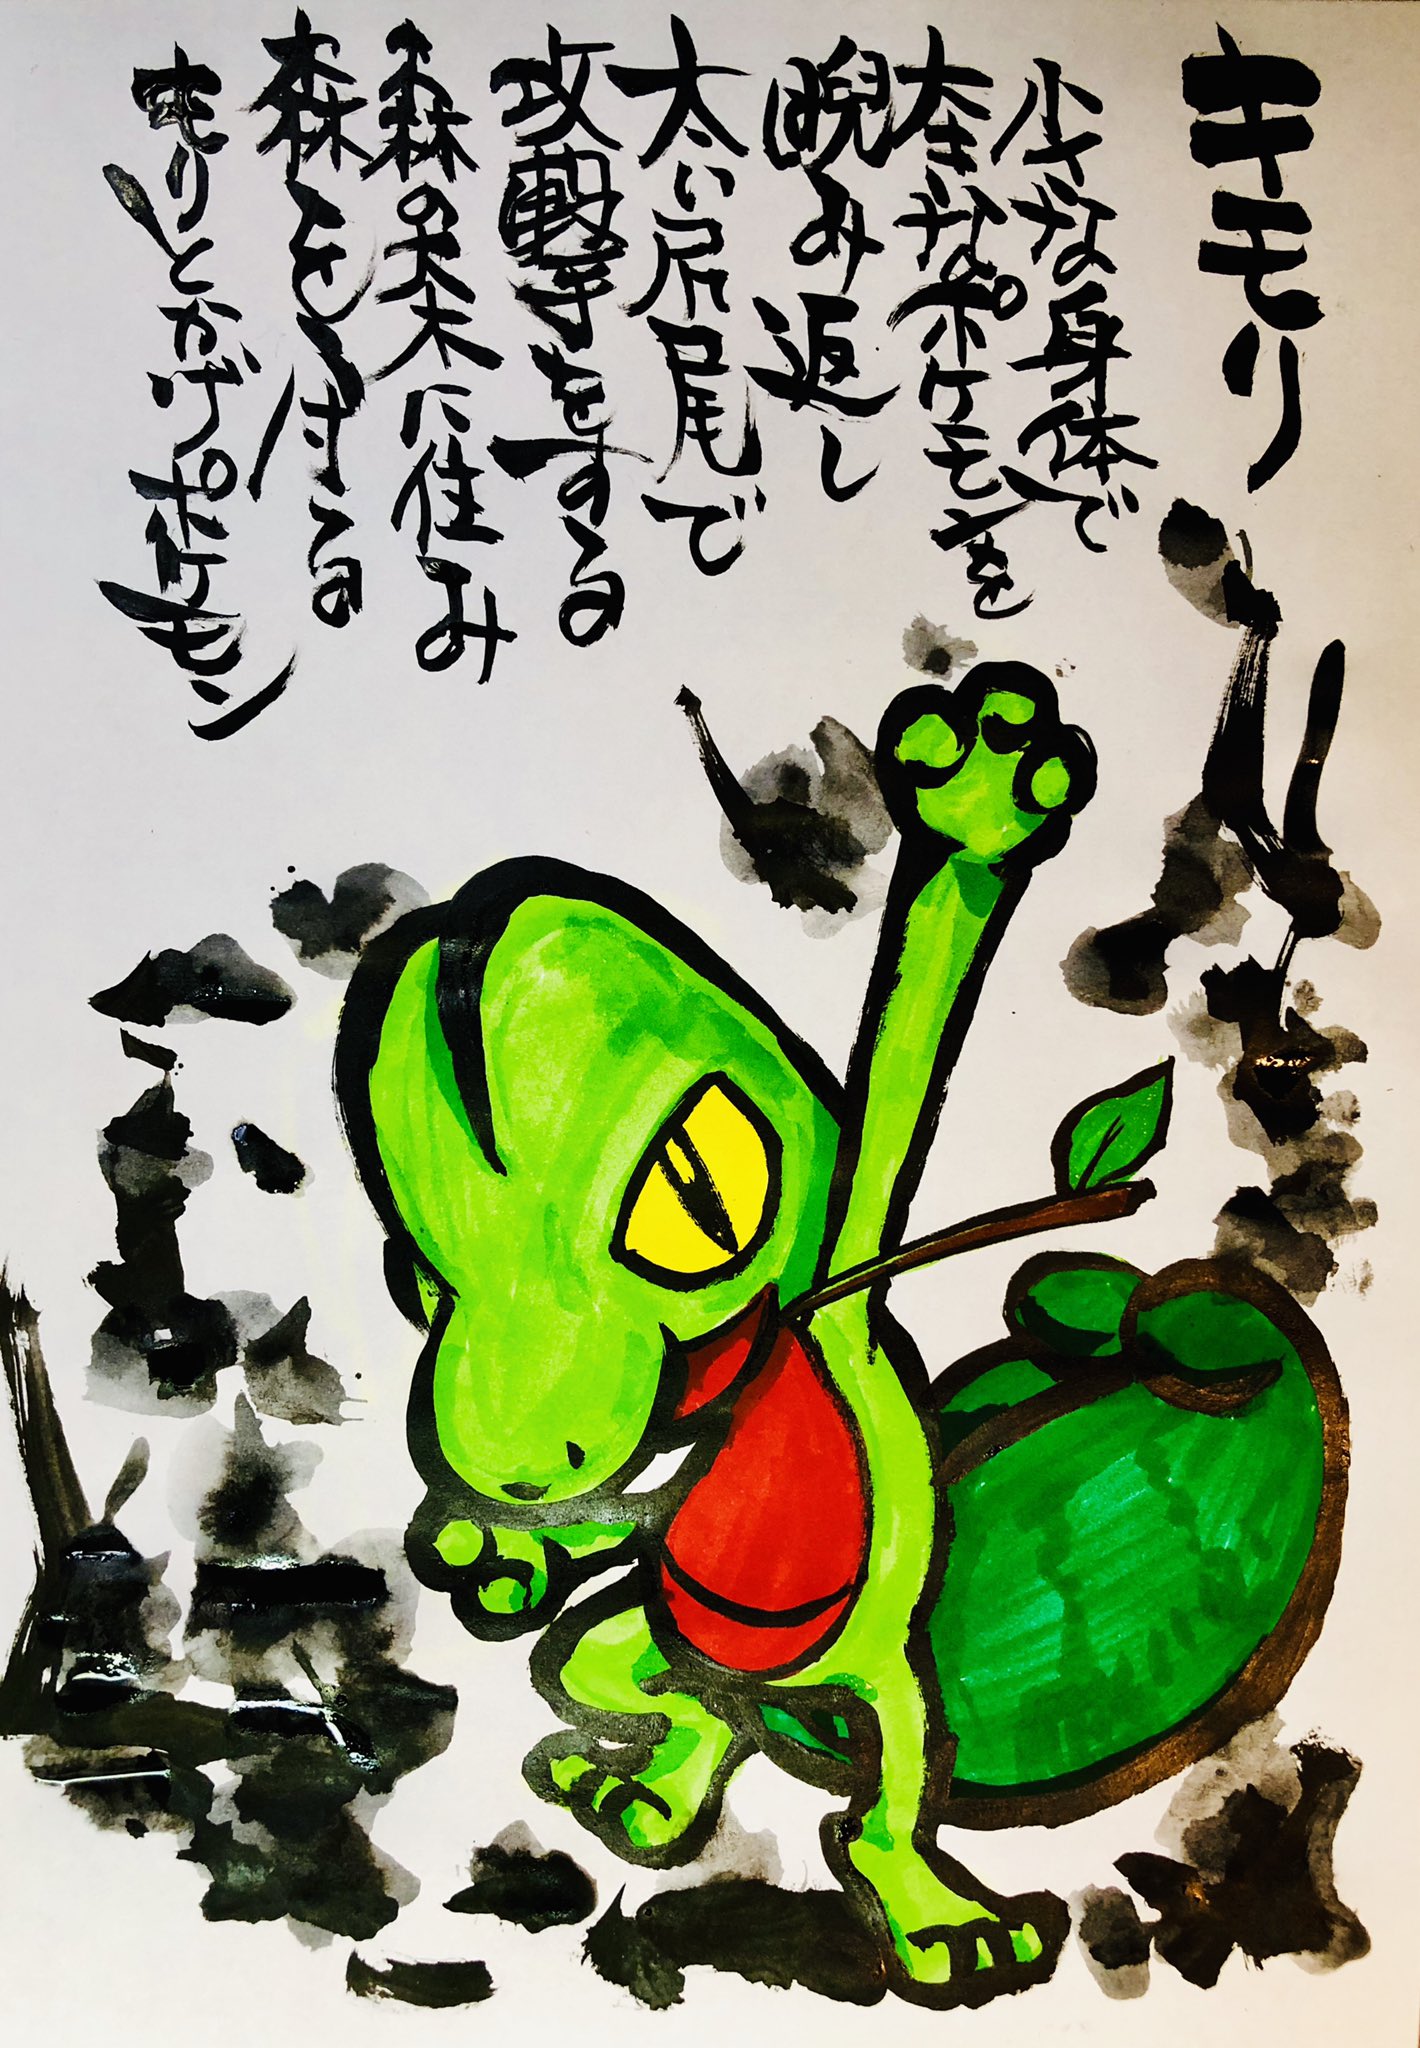 キモリ
小さな身体で
大きなポケモンを
睨み返し
太い尻尾で
攻撃をする
森の大木に住み
森を守る
もりとかげポケモン